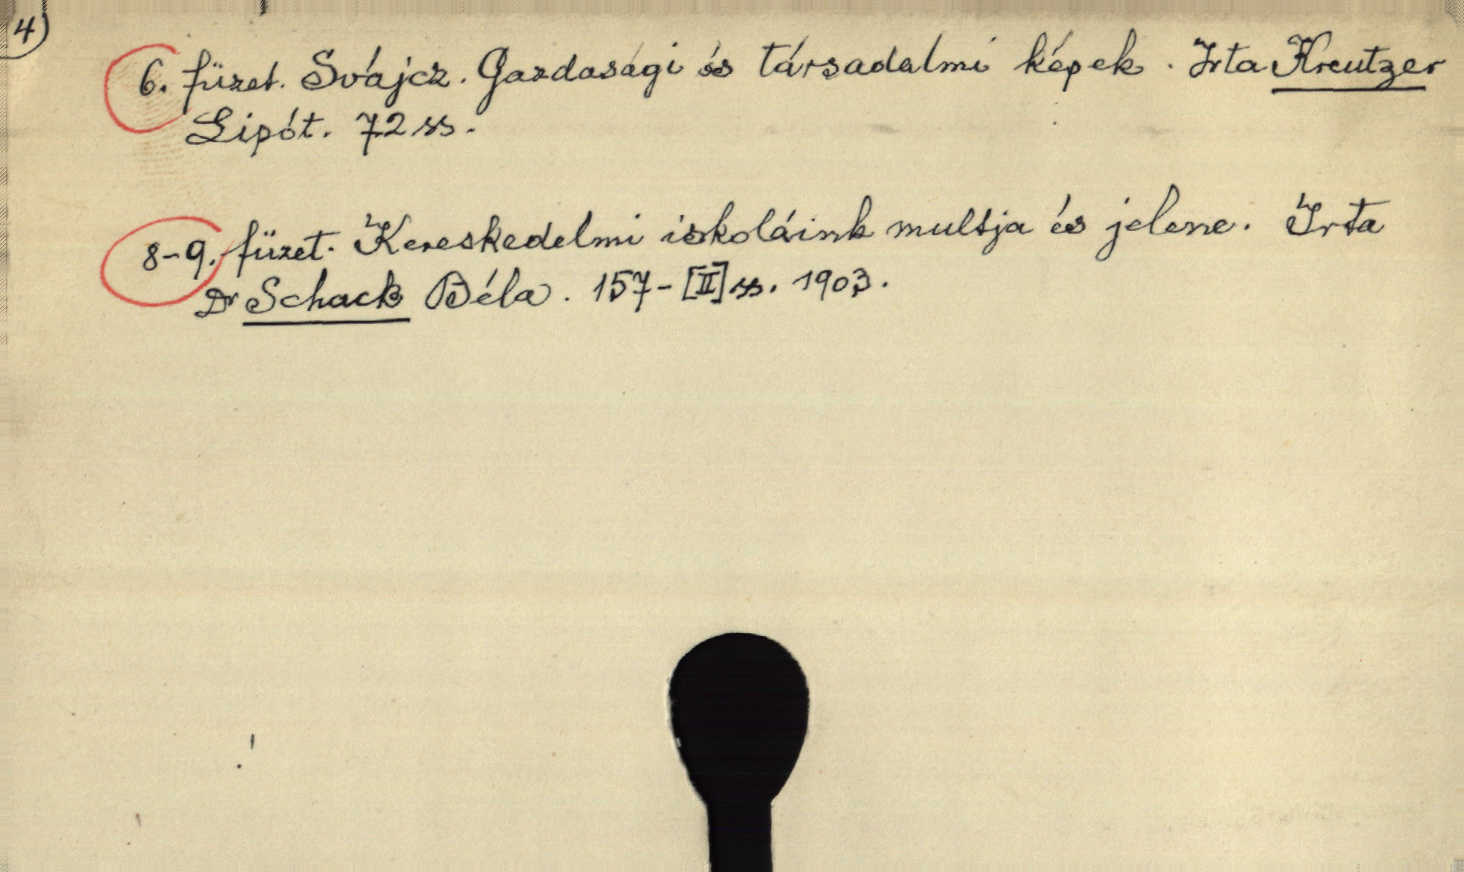 4)
6. füzet. Svájcz. Gazdasági és társadalmi képek. Irta Kreutzer
Lipót. 72 ss.
8-9. füzet. Kereskedelmi iskoláink multja és jelene. Irta
Dr Schack Béla. 157-[II] ss. 1903.